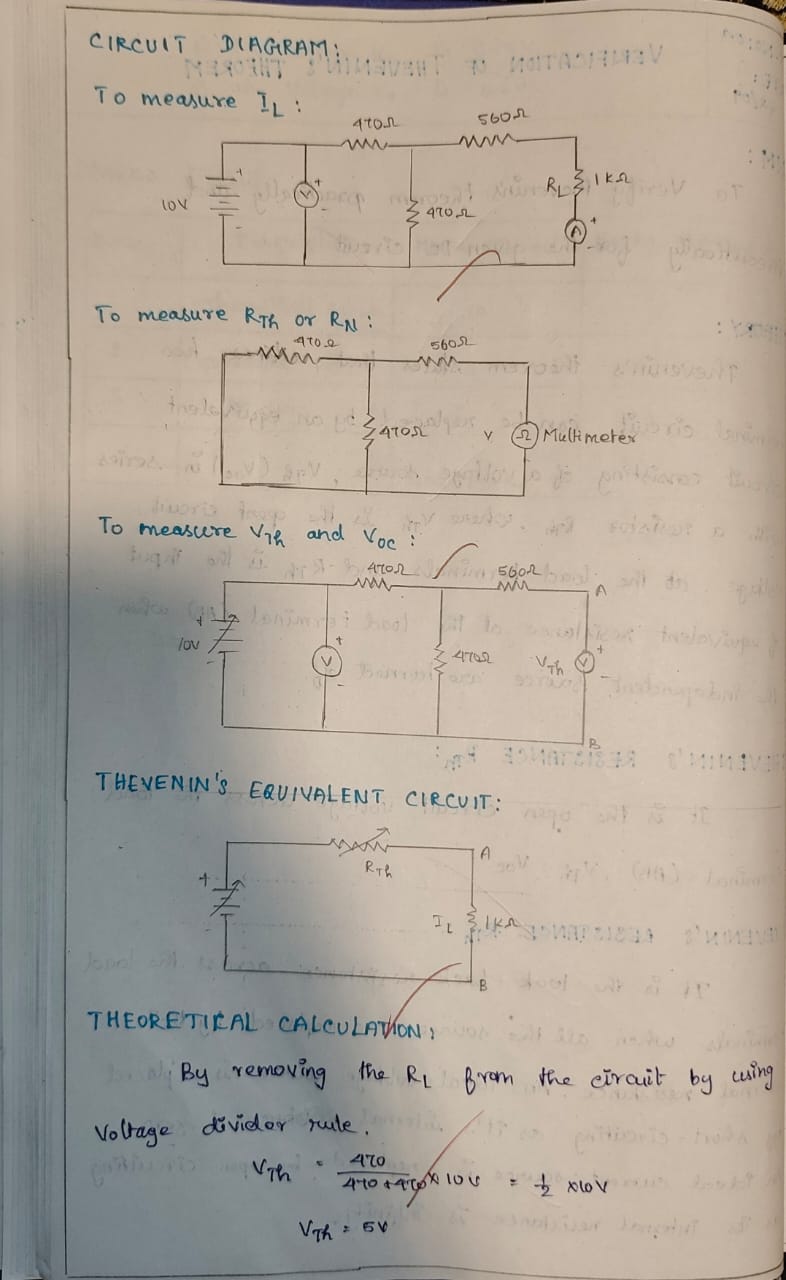 CIRCUIT DIAGRAM:
To measure I_L :
470Ω 560Ω
10V + - V + 470Ω R_L 1KΩ
A +
-
To measure R_Th or R_N :
470Ω 560Ω
470Ω V Ω Multimeter
To measure V_Th and V_OC :
470Ω 560Ω A
+ 10V V + - 470Ω V_Th V + -
B
THEVENIN'S EQUIVALENT CIRCUIT:
R_Th A
+ I_L 1KΩ
B
THEORETICAL CALCULATION:
By removing the R_L from the circuit by using
Voltage divider rule.
V_Th = 470 / 470+470 × 10V = 1/2 ×10V
V_Th = 5V